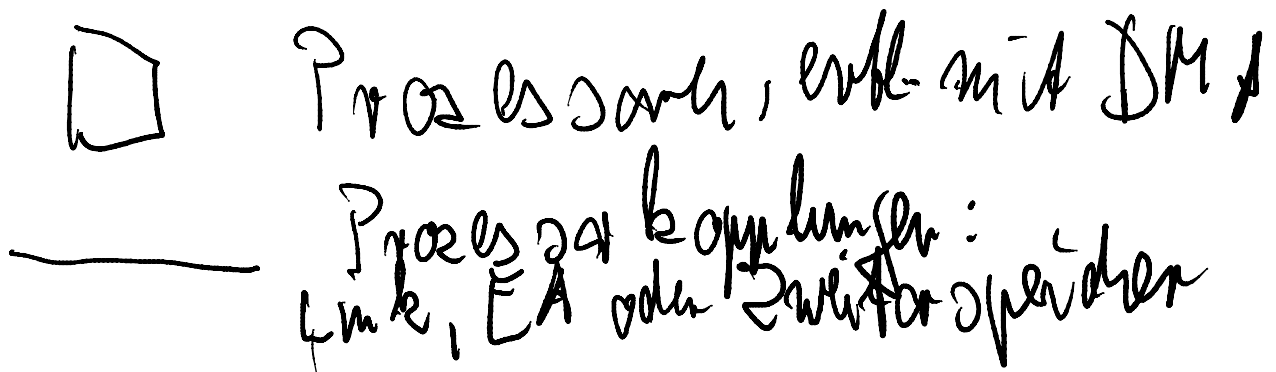 Prozessoren, evtl. mit DMA
Prozessorkopplungen:
Link, EA oder Zweitorspeicher